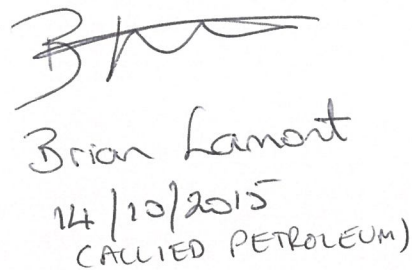 Brian Lamont
14/10/2015
(ALLIED PETROLEUM)